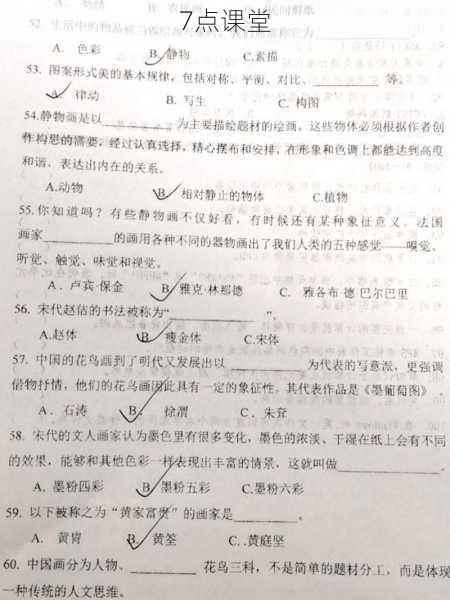 A. 刺绣 B. 农民画 C. 民间剪纸
7点课堂
52. 生活中的物品被当做绘画对象时，我们通常称它为
A. 色彩 B. 静物 C.素描
53. 图案形式美的基本规律，包括对称、平衡、对比、________ 等。
A. 律动 B. 写生 C. 构图
54.静物画是以________为主要描绘题材的绘画。这些物体必须根据作者创
作构思的需要，经过认真选择，精心摆布和安排，在形象和色调上都能达到高度
和谐，表达出内在的关系。
A.动物 B. 相对静止的物体 C.植物
55.你知道吗？有些静物画不仅好看，有时候还有某种象征意义。法国
画家________的画用各种不同的器物画出了我们人类的五种感觉——嗅觉、
听觉、触觉、味觉和视觉。
A．卢宾·保金 B. 雅克·林那德 C. 雅各布·德·巴尔巴里
56. 宋代赵佶的书法被称为“________”。
A.赵体 B. 瘦金体 C.宋体
57. 中国的花鸟画到了明代又发展出以________为代表的写意派，更强调
借物抒情，他们的花鸟画因此具有一定的象征性，其代表作品是《墨葡萄图》．
A．石涛 B. 徐渭 C．朱耷
58. 宋代的文人画家认为墨色里有很多变化，墨色的浓淡、干湿在纸上会有不同
的效果，能够和其他色彩一样表现出丰富的情景，这就叫做________。
A．墨粉四彩 B. 墨粉五彩 C.墨粉六彩
59. 以下被称之为“黄家富贵”的画家是________。
A. 黄胄 B. 黄筌 C. .黄庭坚
60. 中国画分为人物、________ 花鸟三科，不是简单的题材分工，而是体现
一种传统的人文思维。